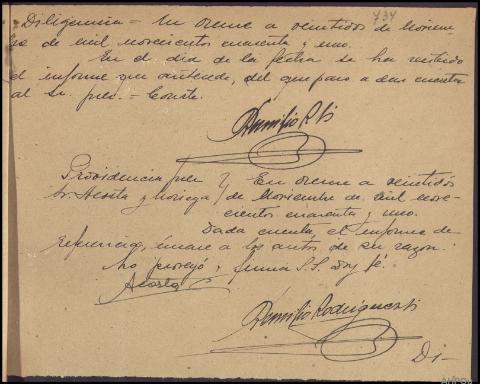 734
Diligencia = En Orense a veintidos de Noviem-
bre de mil novecientos cuarenta y uno.
En el dia de la fecha se ha recibido
el informe que antecede, del que paso a dar cuenta
al Sr. Juez. = Conste.
Providencia Juez } En Orense a veintidós
Sr. Acosta y Noriega } de Noviembre de mil nove-
cientos cuarenta y uno.
Dada cuenta, el informe de
referencia, únase a los autos de su razón.
Lo proveyó y firma S.S. Doy fé.
Acosta
Remilio Rodriguez
Di-